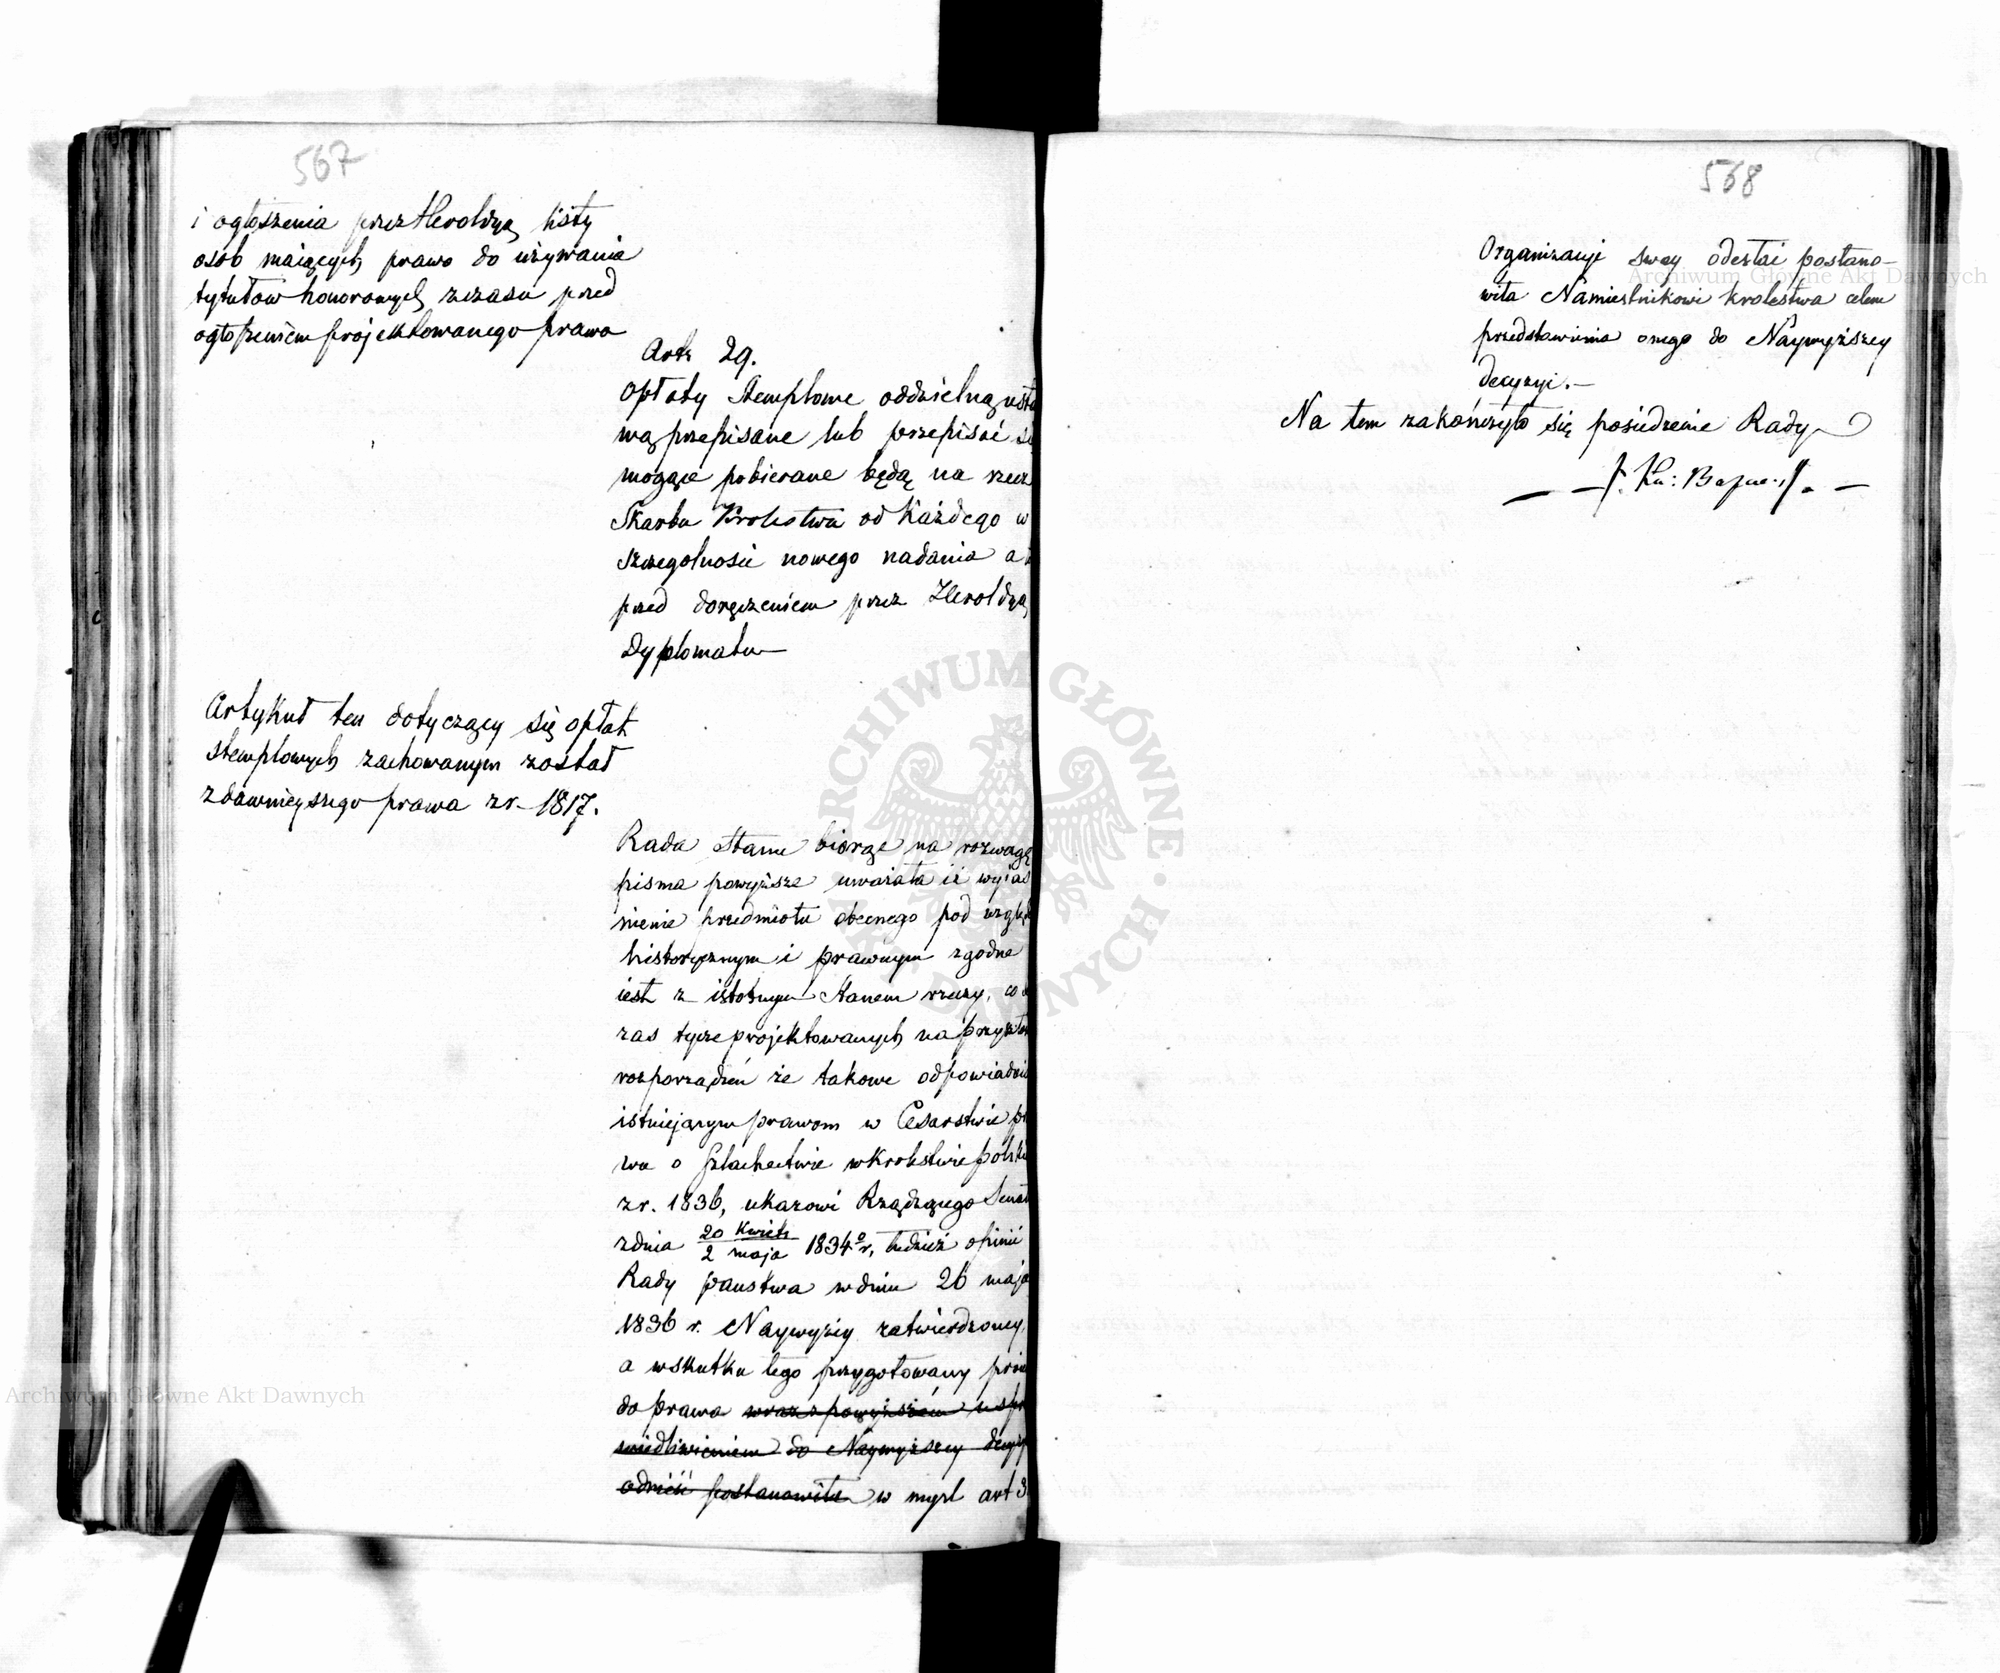 567
i ogłoszenia przez Heroldyą listy
osób maiących prawo do używania
tytułów honorowych z czasu przed
ogłoszeniem projektowanego prawa
Art. 29.
Opłaty Stemplowe oddzielną usta
wą przepisane lub przepisać się
mogące pobierane będą na rzecz
Skarbu Krolestwa od każdego w
szczegolności nowego nadania a
przed doręczeniem przez Heroldyą
Dyplomatu
Artykuł ten dotyczący się opłat
stemplowych zachowanym został
z dawnieyszego prawa z r. 1817.
Rada Stanu biorąc na rozwagę
pisma powyższe uważała iż wyias
nienie przedmiotu obecnego pod wzglę
historycznym i prawnym zgodne
iest z istotnym Stanem rzeczy, co
zas tycze projektowanych na przyszło
rozporządzeń że takowe odpowiada
istniejącym prawom w Cesarstwie pr
wu o Szlachectwie w Krolestwie Polski
z r. 1836, ukazowi Rządzącego Senat
z dnia 20 Kwiet/2 maja 1834 r, tudzież opinii
Rady państwa w dniu 26 maja
1836 r. Naywyżey zatwierdzoney,
a wskutku tego przygotowany proie
do prawa wraz z powyższem uspr
wiedliwieniem do Naywyższey decyz
odnieść postanowiła w myśl art 3
568
Organizacyi swey odesłać postano-
wiła Namiestnikowi Krolestwa celem
przedstawienia onego do Naywyższey
decyzyi.—
Na tem zakończyło się posiedzenie Rady
Archiwum Główne Akt Dawnych
Archiwum Główne Akt Dawnych
ARCHIWUM GŁÓWNE AKT DAWNYCH